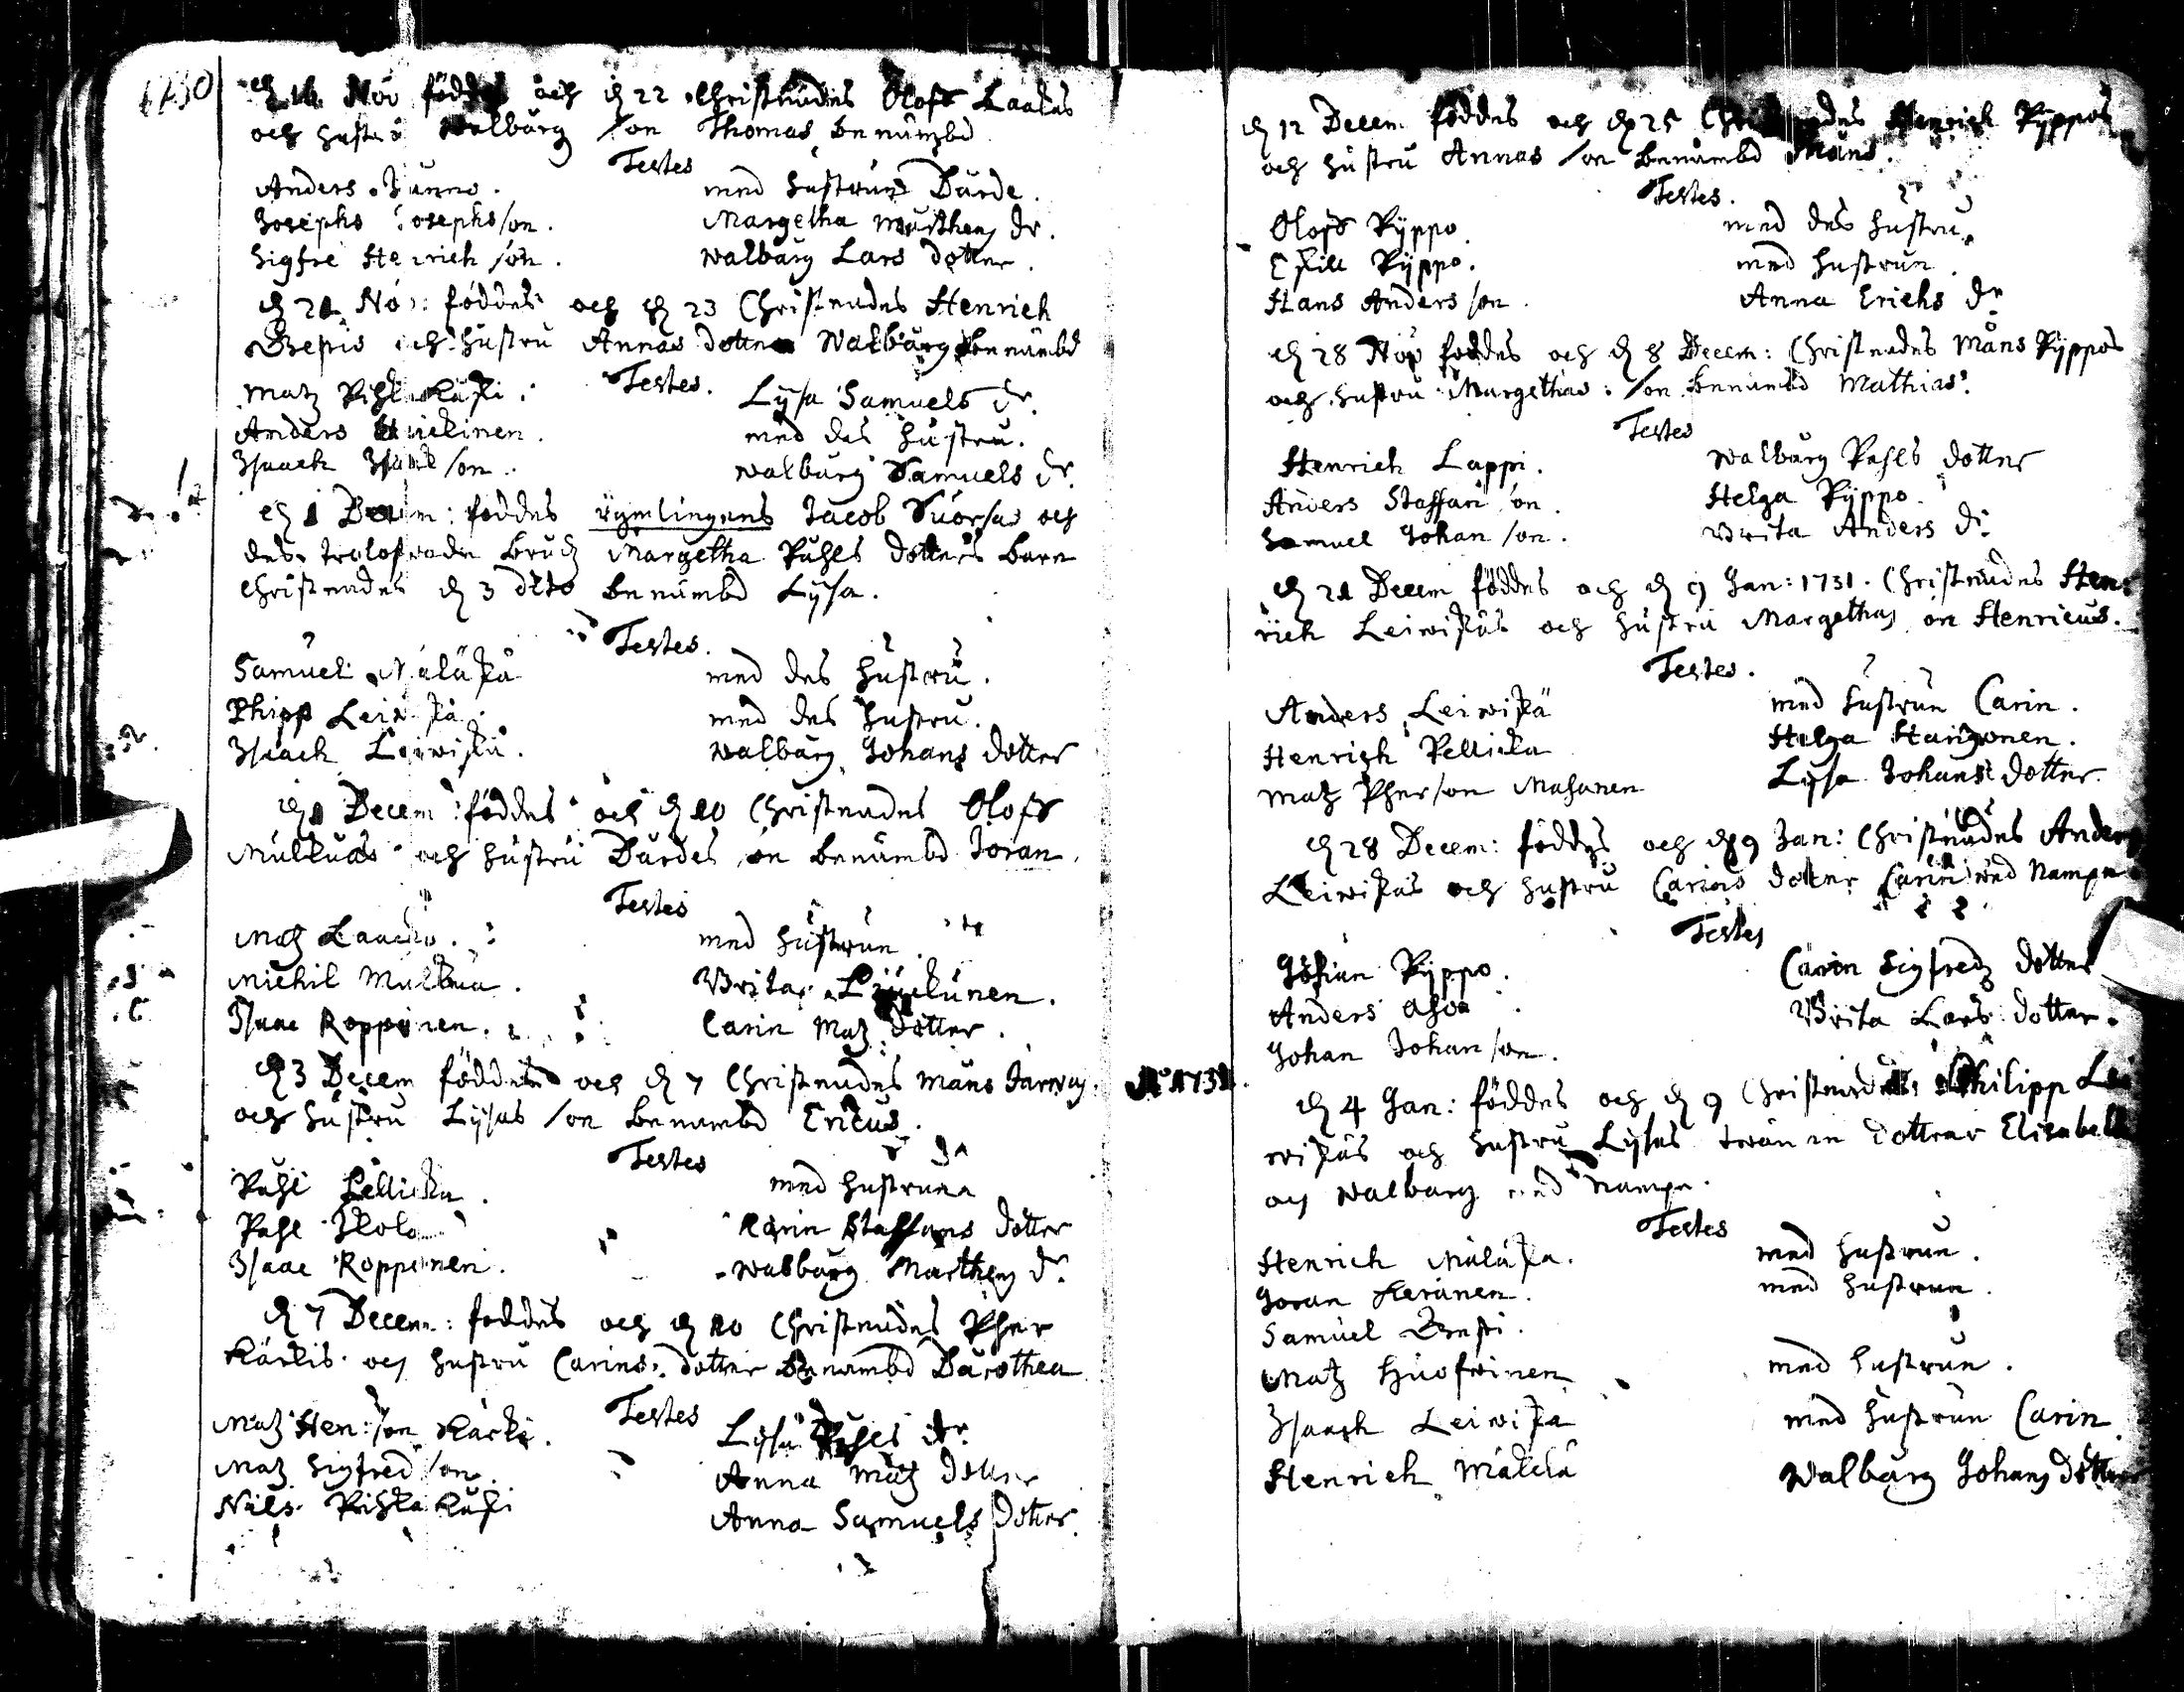 1730
d 16 Nov föddes och d 22 Christnades Oloff Laakes
och hustru Walborg son Thomas benämbd
Testes
Anders med hustrun Bärde.
Josephs Josephson. Margetha Mårthens dr.
Sigfre Henrichson. Walborg Lars dotter.
d 21 Nov: föddes och d 23 Christnades Henrich
och hustru Annas dotter Walborg benämbd
Testes.
Matz Pihlakuhi. Lysa Samuels dr.
Anders med des hustru.
Isaack Isackson. Walborg Samuels dr.
d 1 Decem: foddes rymlingens Jacob Suorsas och
des trolofwade brud Margetha Påhls dotters barn
Christnades d 3 dito benämbd Lysa.
Testes.
Samuel Määttä med des hustru.
Phipp Leiwiskä. med des hustru.
Isaack Leiwiskä. Walborg Johans dotter
d 1 Decem: föddes och d 10 Christnades Oloff
Mulkuas och hustru Bärdes son benämbd Joran
Testes
Matz med hustrun
Michil Mulkua. Brita
Isaac Ropponen. Carin Matz dotter.
d 3 Decem föddes och d 7 Christnades Måns
och hustru Lysas son benämbd Ericus.
Testes
Påhl Pellicka. med hustrun
Påhl Karin Staffans dotter
Isaac Ropponen. Walborg Marthens dr
d 7 Decem: foddes och d 10 Christnades Pher
Kärkis och hustru Carins dotter benambd Bärothea
Testes
Matz Hen:son Kärki. Lysa Påhls dr.
Matz Sigfredson. Anna Matz dotter
Nils Pihlakuhi Anna Samuels dotter.
d 12 Decem föddes och d 25 Christnades Henrich Ryppos
och hustru Annas son benämbd Måns.
Testes.
Oloff Ryppo. med des hustru.
Eskill Ryppo. med hustrun.
Hans Anderson. Anna Erichs dr
d 28 Nov foddes och d 8 Decem: Christnades Måns Ryppos
och hustru Margethas: son benämbd Mathias.
Testes
Henrich Lappi. Walborg Påhls dotter
Anders Staffanson. Helga Ryppo.
Samuel Johanson. Brita Anders dr
d 21 Decem föddes och d 9 Jan: 1731. Christnades Hen:
rich Leiwiskäs och hustru Margethas son Henricus.
Testes.
Anders Leiwiskä med hustrun Carin.
Henrich Pellicka Helga
Matz Pherson Mahanen Lysa Johans dotter.
d 28 Decem: föddes och d 9 Jan: Christnades Anders
Leiwiskäs och hustru Carins dotter Carin med Nampn
Testes
Johan Ryppo. Carin Sigfredz dotter
Anders Brita Lars dotter.
Johan Johanson.
Ao 1731.
d 4 Jan: föddes och d 9 Christnades Philipp Lei
wiskäs och hustru Lysas twänne dottrar Elisabeth
och Walborg med Nampn.
Testes
Henrich Määttä. med hustrun.
Joran Keränen. med hustrun.
Samuel
Matz med hustrun.
Isaach Leiwiska med hustrun Carin.
Henrich Walborg Johans dotter